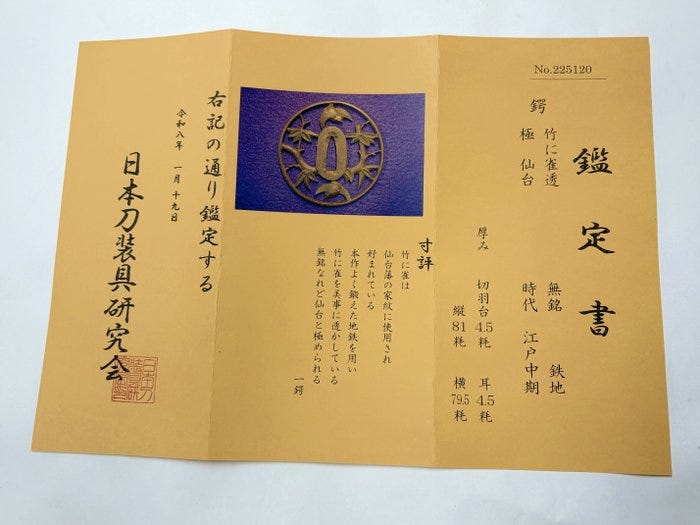 No.225120
鑑定書
鍔 竹に雀透 無銘 鉄地
極 仙台 時代 江戸中期
厚み 切羽台4.5粍 耳4.5粍
縦81粍 横79.5粍
寸評
竹に雀は
仙台藩の家紋に使用され
好まれている
本作よく鍛えた地鉄を用い
竹に雀を美事に透かしている
無銘なれど仙台と極められる
一鍔
右記の通り鑑定する
令和八年 一月 十九日
日本刀装具研究会